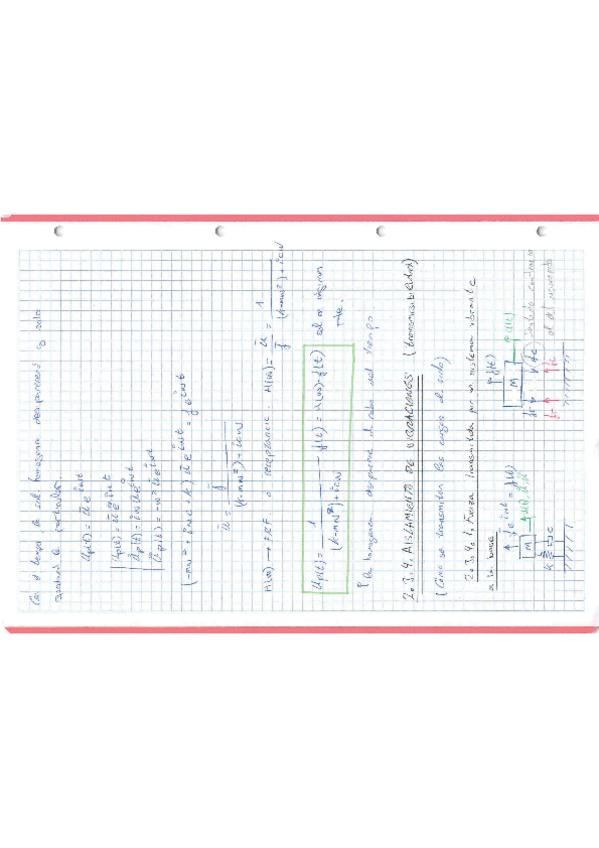 Con el tiempo, la sol. homogénea desaparecerá y solo
quedará la particular.
Up(t) = ū e^{iωt}
Up(t) = ū e^{iωt}
U̇p(t) = iωū e^{iωt}
Üp(t) = -ω² ū e^{iωt}
(-mω² + iωc + k) ū e^{iωt} = f̄ e^{iωt}
ū = f̄ / ((k-mω²) + icω)
H(ω) → FRF o receptancia. H(ω) = ū / f̄ = 1 / ((k-mω²) + icω)
Up(t) = 1 / ((k-mω²) + icω) · f(t) = H(ω)·f(t) sol en régimen
La homogénea desaparece al cabo del tiempo
2.3.4. AISLAMIENTO DE VIBRACIONES (transmisibilidad)
(Cómo se transmiten las cargas al suelo)
2.3.4.1. Fuerza transmitida por un sistema vibrante
a su base
f̄ e^{iωt} = f(t)
M
k
c
f(t)
M
u(t)
fk
fc
sentido contrario
al del movimiento
fk
fc